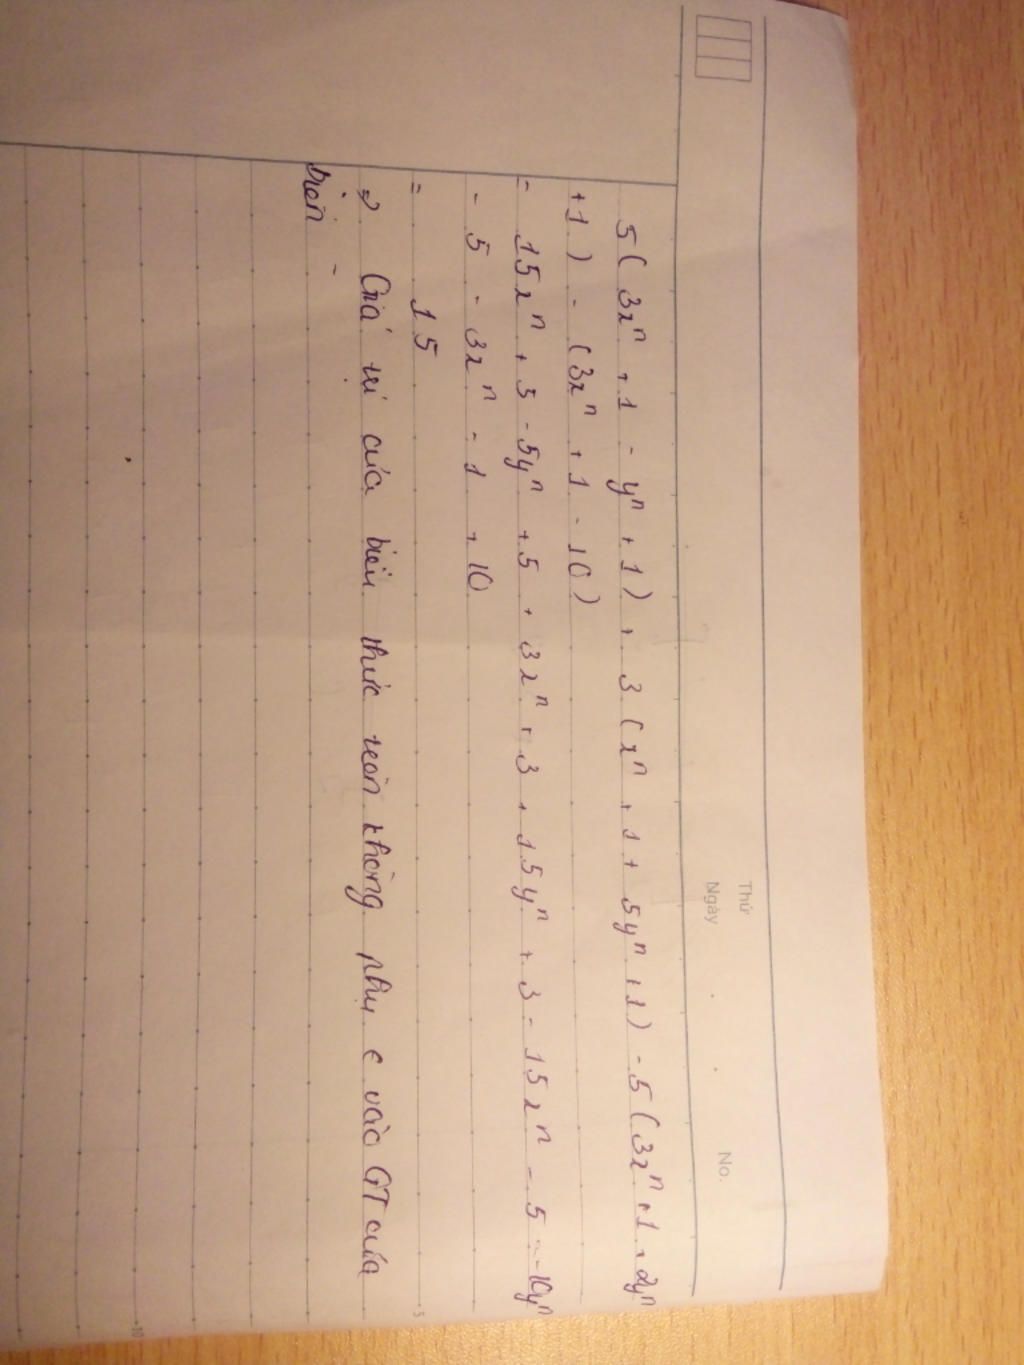 Thứ
Ngày
No.
5 ( 3xⁿ + 1 - yⁿ + 1 ) + 3 ( xⁿ + 1 + 5yⁿ + 1 ) - 5 ( 3xⁿ + 1 + 2yⁿ
+ 1 ) - ( 3xⁿ + 1 - 10 )
= 15xⁿ + 5 - 5yⁿ + 5 + 3xⁿ + 3 + 15yⁿ + 3 - 15xⁿ - 5 - 10yⁿ
- 5 - 3xⁿ - 1 + 10
= 15
5
=> Giá trị của biểu thức trên không phụ c vào GT của
biến
10